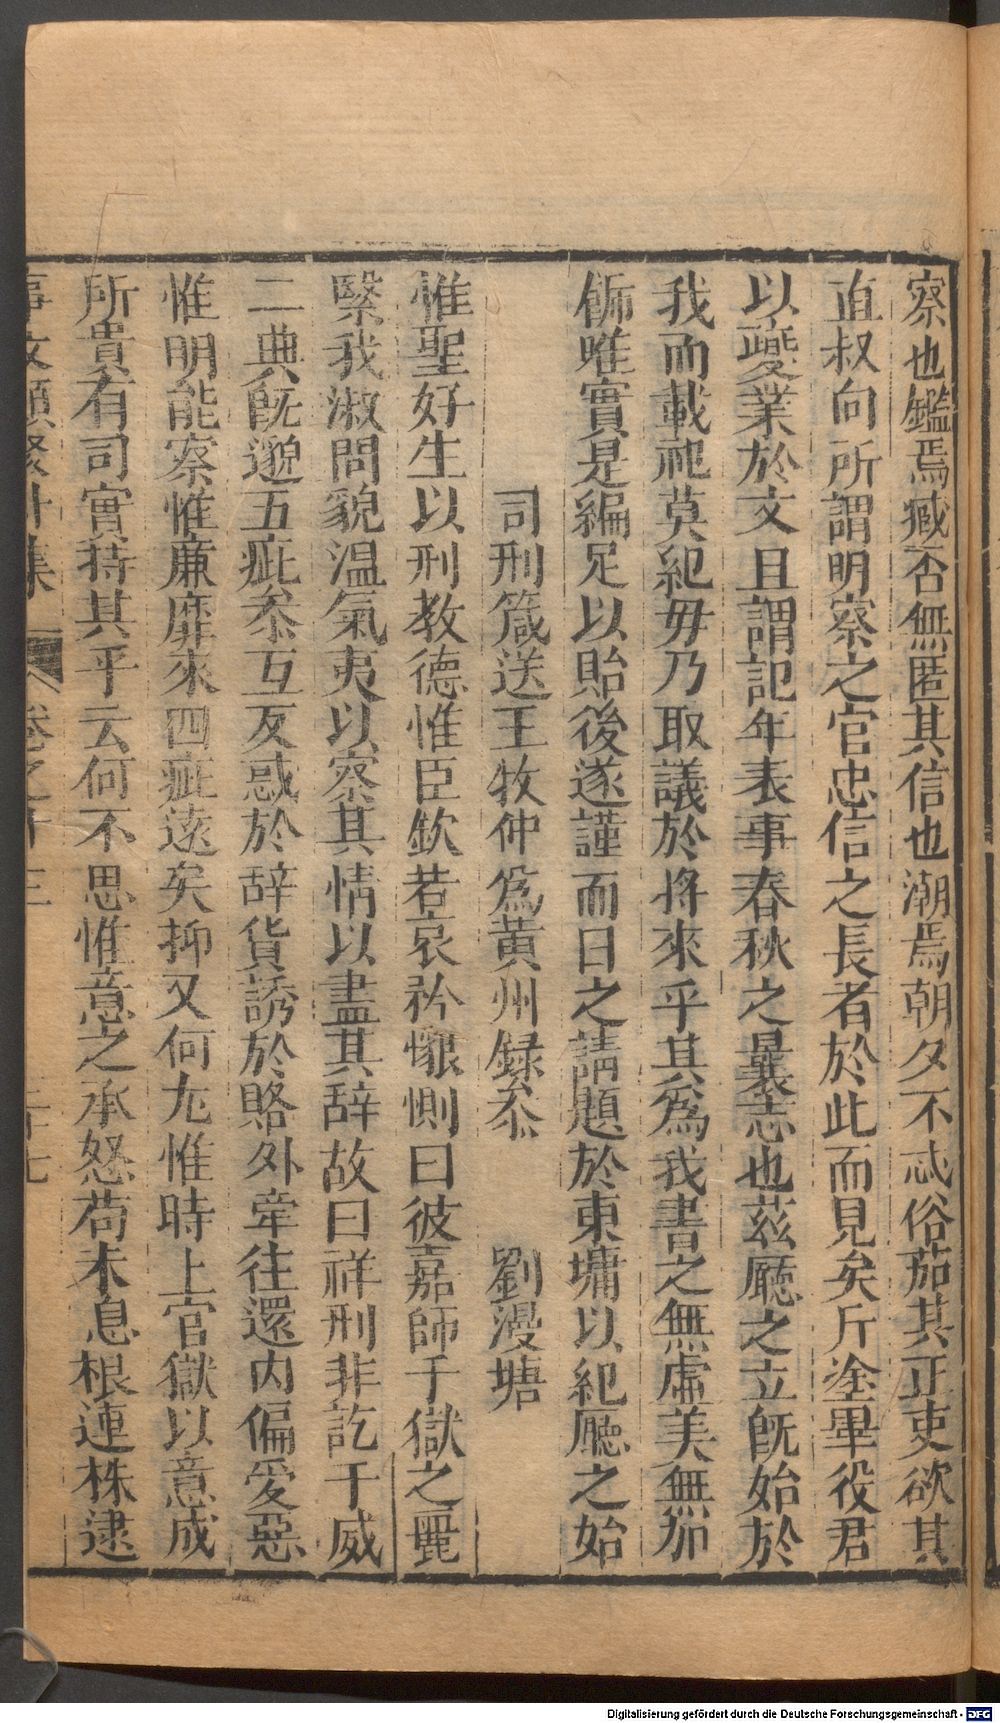 察也鑑焉臧否無匿其信也潮焉朝夕不忒俗茄其正吏欲其
直叔向所謂明察之官忠信之長者於此而見矣斤塗畢役君
以䕫業於文且謂記年表事春秋之曩志也茲廳之立旣始於
我而載祀莫紀毋乃取議於将來乎其爲我書之無虛美無加
餙唯實是編足以貽後遂謹而日之請題於東墉以紀廳之始
司刑箴送王牧仲爲黄州録叅 劉漫塘
惟聖好生以刑教德惟臣欽若哀矜懇惻曰彼嘉師于獄之麗
繄我淑問貌温氣夷以察其情以盡其辞故曰祥刑非訖于威
二典旣邈五疵叅互反惑於辞貨誘於賂外牽往還内偏愛惡
惟明能察惟廉靡來四疵遠矣抑又何尤惟時上官獄以意成
所貴有司實持其乎云何不思惟意之承怒苟未息根連株逮
事文類聚外集 卷之十三 二十七
Digitalisierung gefördert durch die Deutsche Forschungsgemeinschaft - DFG